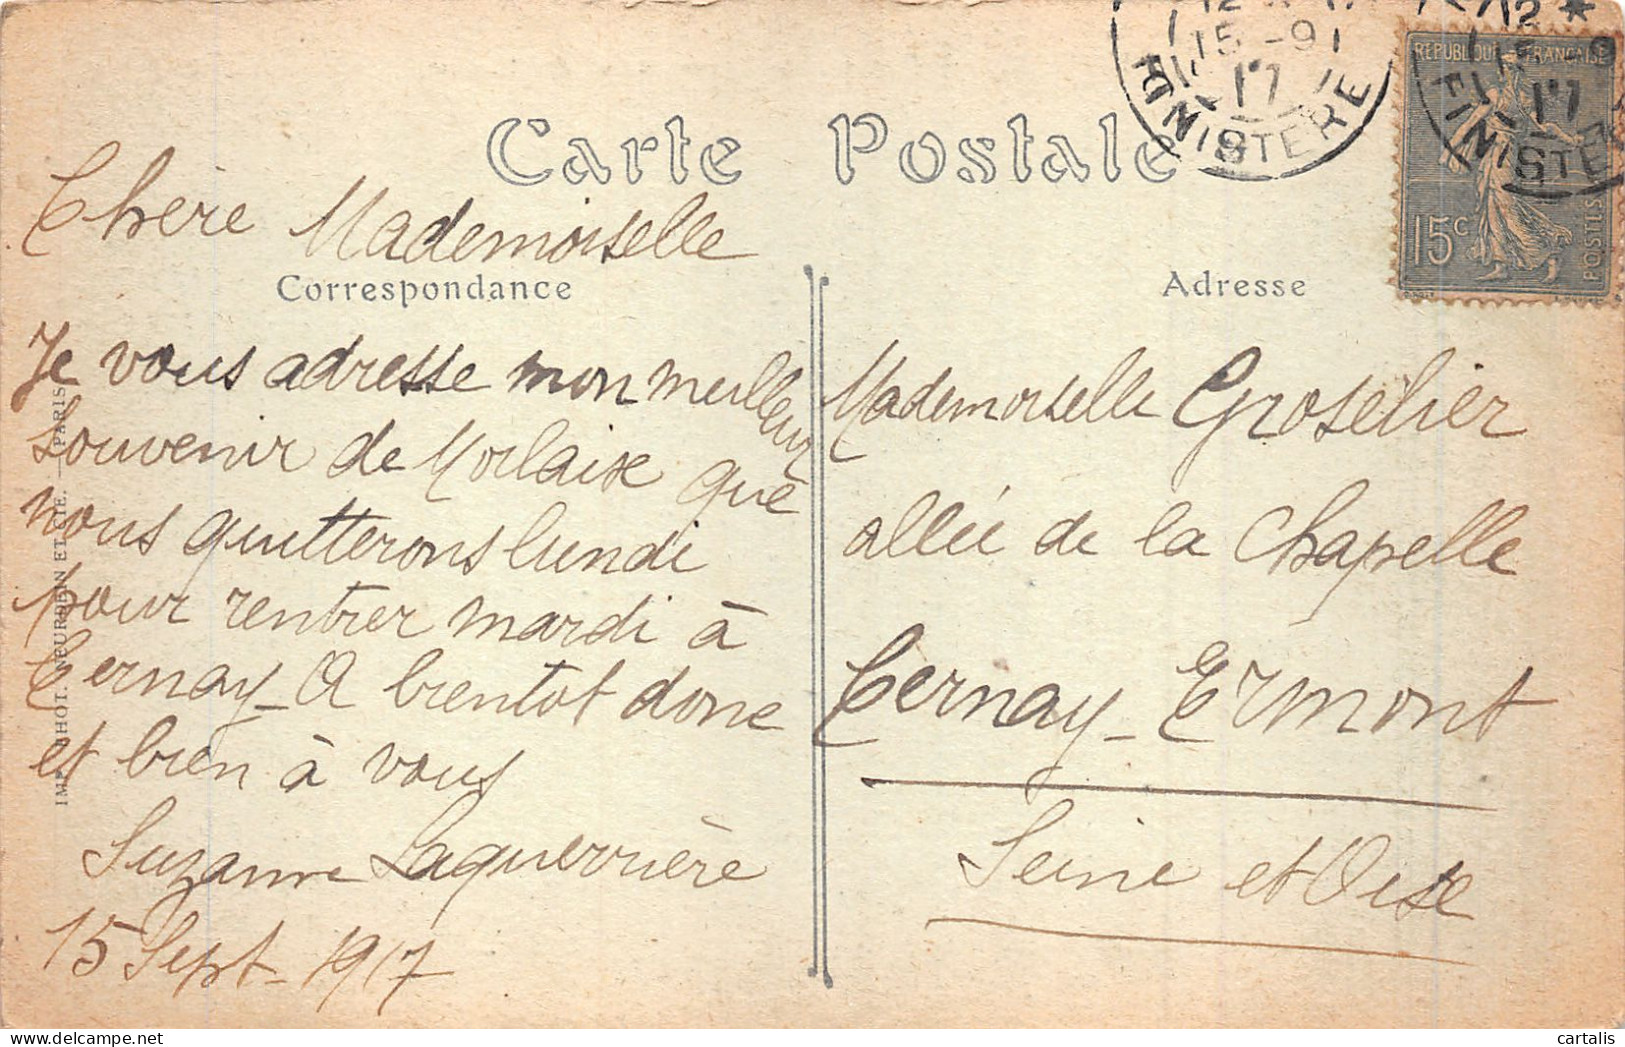 Carte Postale
12
15-9
17
FINISTERE
REPUBLIQUE FRANÇAISE
15c
POSTES
12 *
17
FINISTERE
Chère Mademoiselle
Correspondance
Je vous adresse mon meilleur
souvenir de Morlaix que
nous quitterons lundi
pour rentrer mardi à
Cernay_ A bientot donc
et bien à vous
Suzanne Laguerrière
15 Sept. 1917
Adresse
Mademoiselle Groselier
allée de la Chapelle
Cernay_Ermont
Seine et Oise
IMP. PHOT. NEURDEIN ET CIE. — PARIS
cartalis